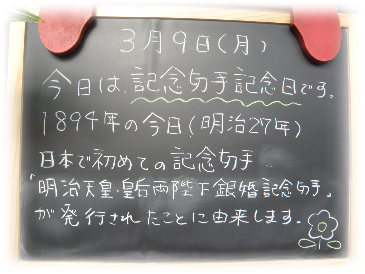 3月9日(月)
今日は、記念切手記念日です。
1894年の今日(明治27年)
日本で初めての記念切手
「明治天皇・皇后両陛下銀婚記念切手」
が発行されたことに由来します。